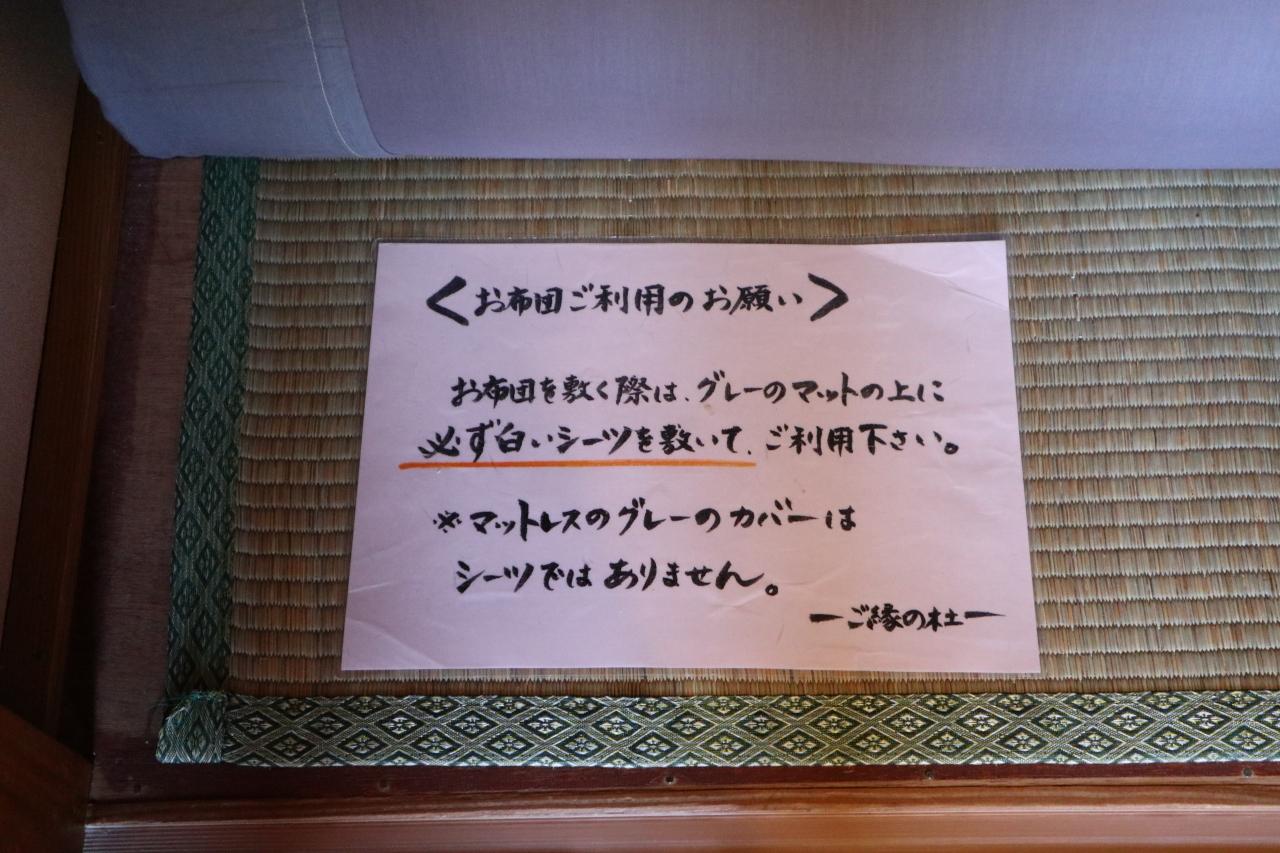 <お布団ご利用のお願い>
お布団を敷く際は、グレーのマットの上に
必ず白いシーツを敷いて、ご利用下さい。
※マットレスのグレーのカバーは
シーツではありません。
ーご縁の杜ー